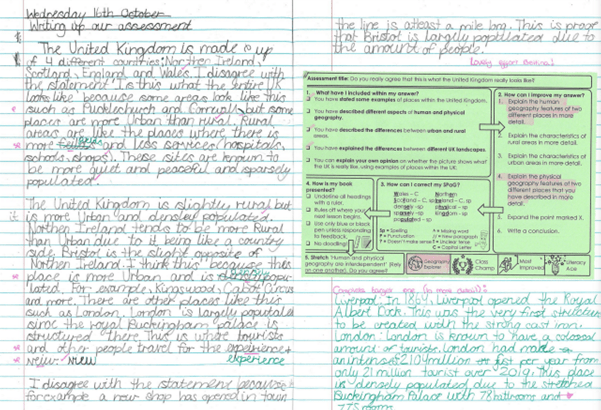 Wednesday 16th October
Writing up our assessment
The United Kingdom is made up
of 4 different countries: Northen Ireland,
Scotland, England and Wales. I disagree with
the statement: Is this what the entire UK
looks like because some areas look like this
such as Pucklechurch and Cornwall, but some
places are more Urban than rural. Rural
areas are like the places where there is
more and less services (hospitals,
schools, shops). These sites are known to
be more quiet and peaceful and sparsely
populated.
The United Kingdom is slightly rural but
is more Urban and densley populated.
Northen Ireland tends to be more Rural
than Urban due to it being like a country
side. Bristol is the slight opposite of
Northen Ireland. I think this because this
place is more Urban and is densely popu-
lated. For example, Kingswood, Cabot Circus
and more. There are other places like this
such as London. London is largely populated
since the royal Buckingham palace is
structured there. This is what tourists
and other people travel for the experience +
view. view experience
I disagree with the statement because
for example a new shop has opened in town
the line is atleast a mile long. This is prove
that Bristol is largely populated due to
the amount of people.
Lovely effort
Assessment title: Do you really agree that this is what the United Kingdom really looks like?
1. What have I included within my answer?
You have stated some examples of places within the United Kingdom.
You have described different aspects of human and physical
geography.
You have described the differences between urban and rural
areas.
You have explained the differences between different UK landscapes.
You can explain your own opinion on whether the picture shows what
the UK is really like, using examples of places within the UK.
2. How can I improve my answer?
1. Explain the human
geography features of
two different places in
more detail.
2. Explain the characteristics
of rural areas in more detail.
3. Explain the characteristics of
urban areas in more detail.
4. Explain the physical
geography features of two
different places that you
have described in more
detail.
5. Expand the point marked X.
6. Write a conclusion.
4. How is my book
presented?
Underline all headings
with a ruler.
Rules off where your
next lesson begins.
Use only blue or black
pen unless responding
to feedback.
No doodling!
3. How can I correct my SPaG?
Wales - C
Scotland - C, sp
densely - sp
physical - sp
populated - sp
Northern
Ireland - C, sp
England - C, sp
Kingdom - sp
Sp = Spelling
P = Punctuation
? = Doesn't make sense
^ = Missing word
// = New paragraph
= Unclear Sense
C = Capital Letter
5. Stretch 'Human and physical
geography are interdependent' (Rely
on one another). Do you agree?
Geography
Explorer
Class
Champ
Most
Improved
Literacy
Ace
Complete target one (in more detail):
Liverpool: In 1869, Liverpool opened the Royal
Albert Dock. This was the very first structure
to be created with the strong cast iron.
London: London is known to have a colossal
amount of tourists. London had made
an intense £210 million per year from
only 21 million tourist over 2019. This place
is densely populated due to the stretched
Buckingham Palace with 78 bathrooms and
775 rooms